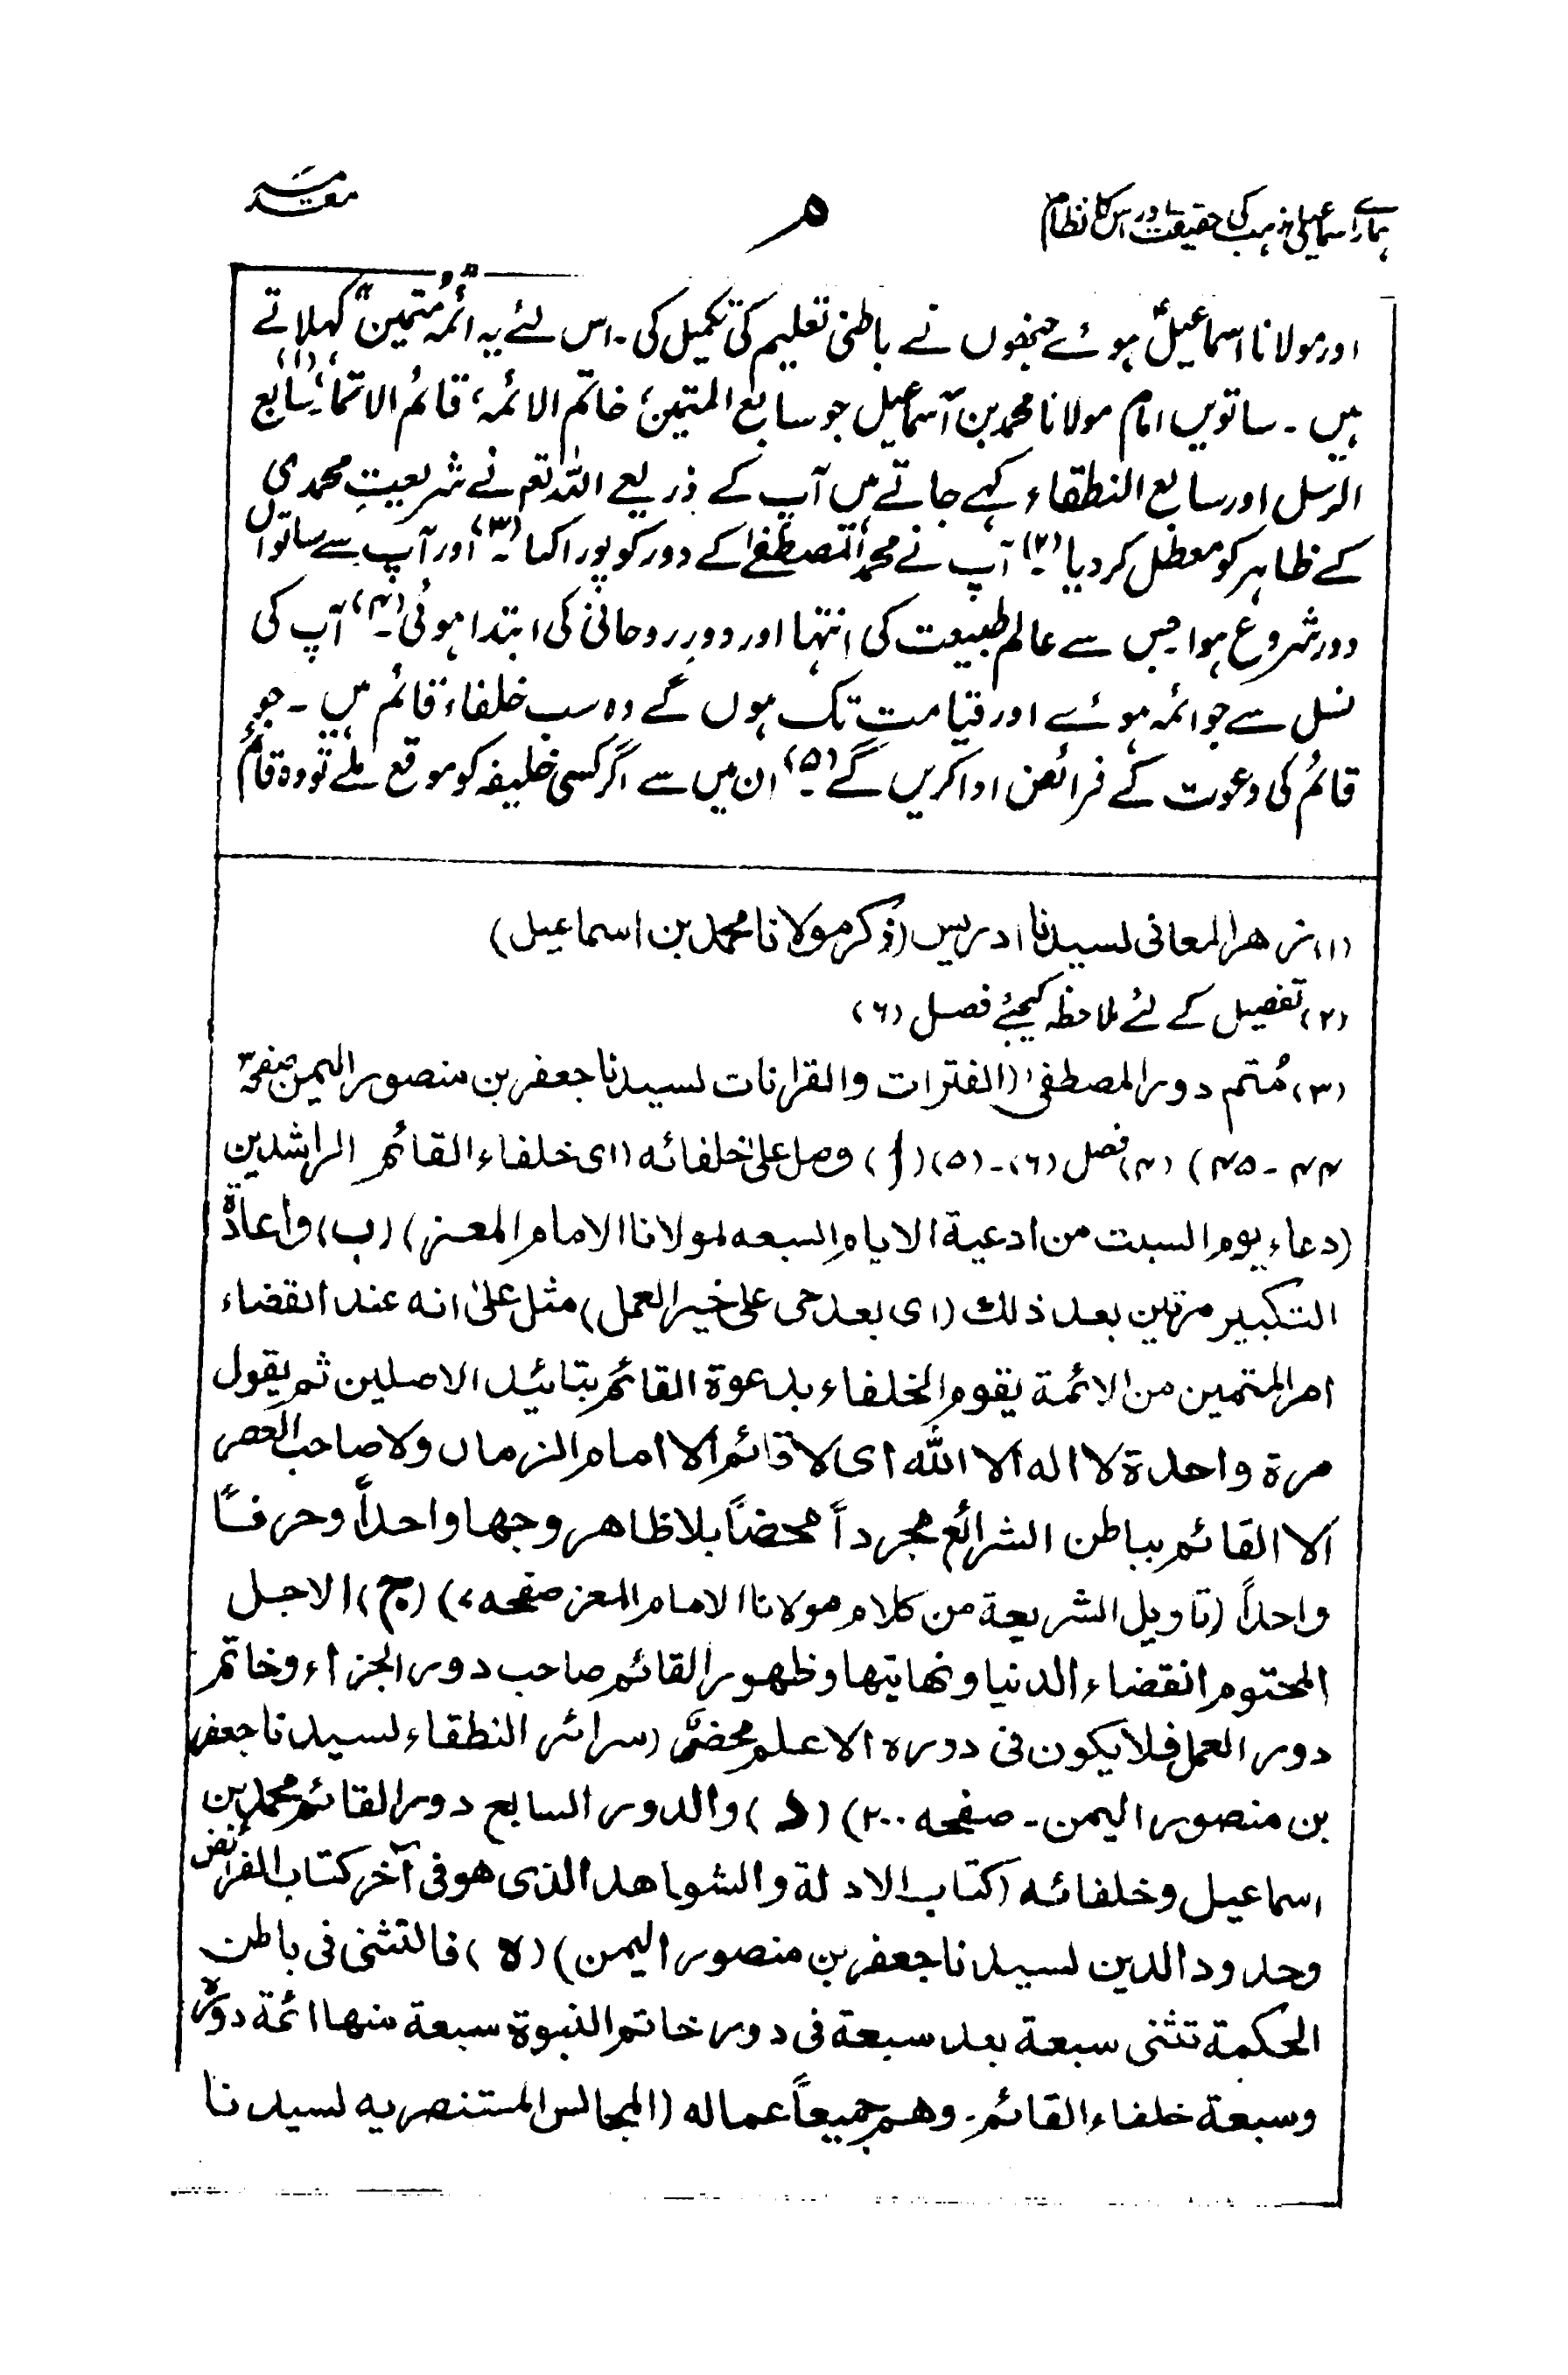 ہمارے اسماعیلی مذہب کی حقیقت اور اس کا نظام
م
مقدمہ
اور مولانا اسماعیل ہوئے جنھوں نے باطنی تعلیم کی تکمیل کی۔ اس لئے یہ "ائمہ مُتمین" کہلاتے
ہیں۔ ساتویں امام مولانا محمد بن اسماعیل جو سابع المتمین، خاتم الائمہ، قائم الائمہ، (۱) سابع
الرسل اور سابع النطقاء کہے جاتے ہیں آپ کے ذریعے اللہ تعم نے شریعتِ محمدی
کے ظاہر کو معطل کر دیا (۲)۔ آپ نے محمد المصطفےٰ کے دور کو پورا کیا (۳)۔ اور آپ سے ساتواں
دور شروع ہوا جس سے عالم طبیعت کی انتہا اور دورِ روحانی کی ابتدا ہوئی (۴)۔ آپ کی
نسل سے جو ائمہ ہوئے اور قیامت تک ہوں گے وہ سب خلفاء قائم ہیں۔ جو
قائم کی دعوت کے فرائض ادا کریں گے (۵)۔ ان میں سے اگر کسی خلیفہ کو موقع ملے تو وہ قائم
(۱) زهر المعانی لسیدنا ادریس (ذکر مولانا محمد بن اسماعیل)
(۲) تفصیل کے لئے ملاحظہ کیجئے فصل (۶)
(۳) مُتم دور المصطفیٰ (الفترات والقرانات لسیدنا جعفر بن منصور الیمن صفحہ
۴۴ - ۴۵) (۴) فصل (۶)۔ (۵) (أ) وصل علیٰ خلفائه (ای خلفاء القائم الراشدین
(دعاء یوم السبت من ادعیة الایام السبعه لمولانا الامام المعز) (ب) واعادة
التکبیر مرتین بعد ذلك (ای بعد حی علی خیر العمل) مثل علیٰ انه عند انقضاء
امر المتمین من الائمة یقوم الخلفاء بدعوة القائم بتائید الاصلین ثم یقول
مرة واحدة لا اله الا الله ای لا قائم الا امام الزمان ولا صاحب العصر
الا القائم بباطن الشرائع مجرداً محضاً بلا ظاهر وجها واحداً وحرفاً
واحداً (تاویل الشریعة من کلام مولانا الامام المعز صفحه ۷) (ج) الاجل
المحتوم انقضاء الدنیا ونهایتها وظهور القائم صاحب دور الجزاء وخاتم
دور العمل فلا یکون فی دوره الا علم محض (سرائر النطقاء لسیدنا جعفر
بن منصور الیمن۔ صفحه ۲۰۰) (د) والدور السابع دور القائم محمد بن
اسماعیل وخلفائه (کتاب الادلة والشواهد الذی هو فی آخر کتاب الفرائض
وحدود الدین لسیدنا جعفر بن منصور الیمن) (ه) فالتثنی فی باطن
الحکمة تثنی سبعة بعد سبعة فی دور خاتم النبوة سبعة منها ائمة دوره
وسبعة خلفاء القائم۔ وهم جمیعاً عماله (المجالس المستنصریه لسیدنا